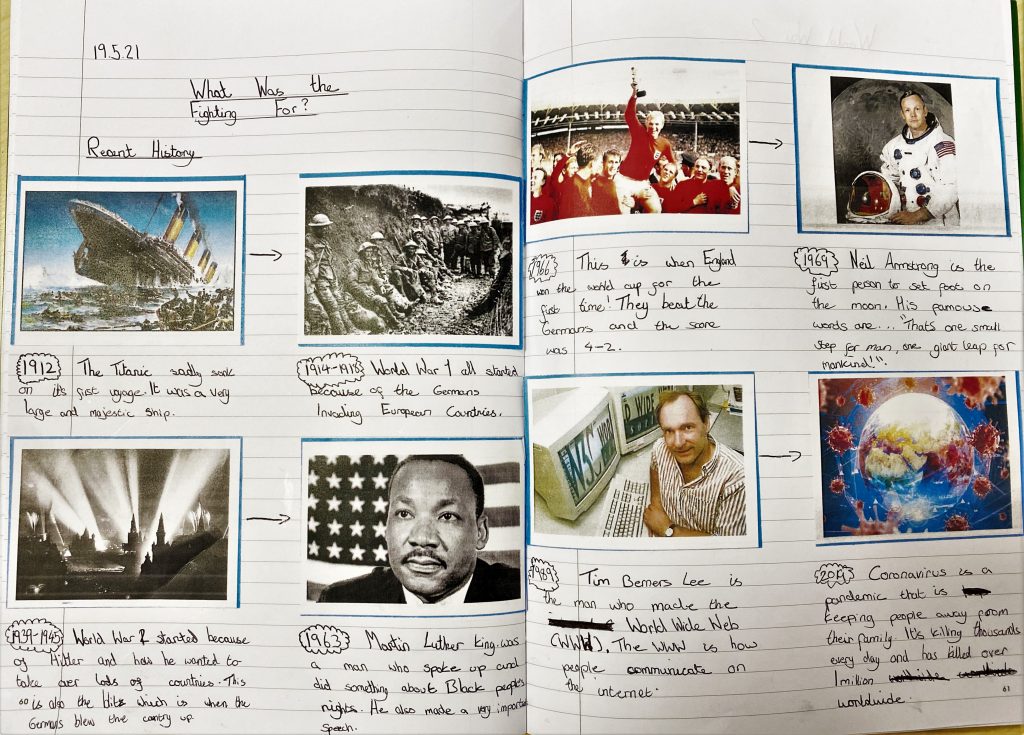 19.5.21
What Was the
Fighting For?
Recent History
1912 The Titanic sadly sunk
on it's fist vyage. It was a very
large and majestic ship.
1914-1918 World War 1 all started
because of the Germans
Invading European Countries.
1939-1945 World War 2 started because
of Hitler and how he wanted to
take over lods of countries. This
is also the blitz which is when the
Germans blew the cantry up
1963 Martin Luther king was
a man who spoke up and
did something about Black people's
rights. He also made a very important
speech.
1966 This is when England
won the world cup for the
first time! They beat the
Germans and the score
was 4-2.
1969 Neil Armstrong is the
first person to set foot on
the moon. His famouse
words are... "That's one small
step for man, one giant leap for
mankind!".
1989 Tim Berners Lee is
the man who made the
World Wide Web
(WWW). The WWW is how
people communicate on
the internet.
2019 Coronavirus is a
pandemic that is
keeping people away from
their family. It's killing thousands
every day and has killed over
1 million
worldwide
61